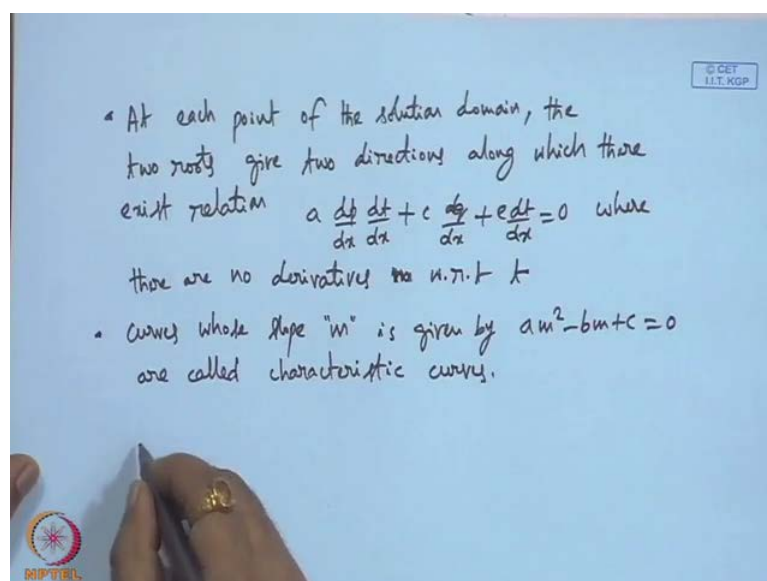 © CET
I.I.T. KGP
• At each point of the solution domain, the
two roots give two directions along which there
exist relation a dp/dx dt/dx + c dq/dx + e dt/dx = 0 where
there are no derivatives w.r.t t
• curves whose slope "m" is given by am² - bm + c = 0
are called characteristic curves.
NPTEL